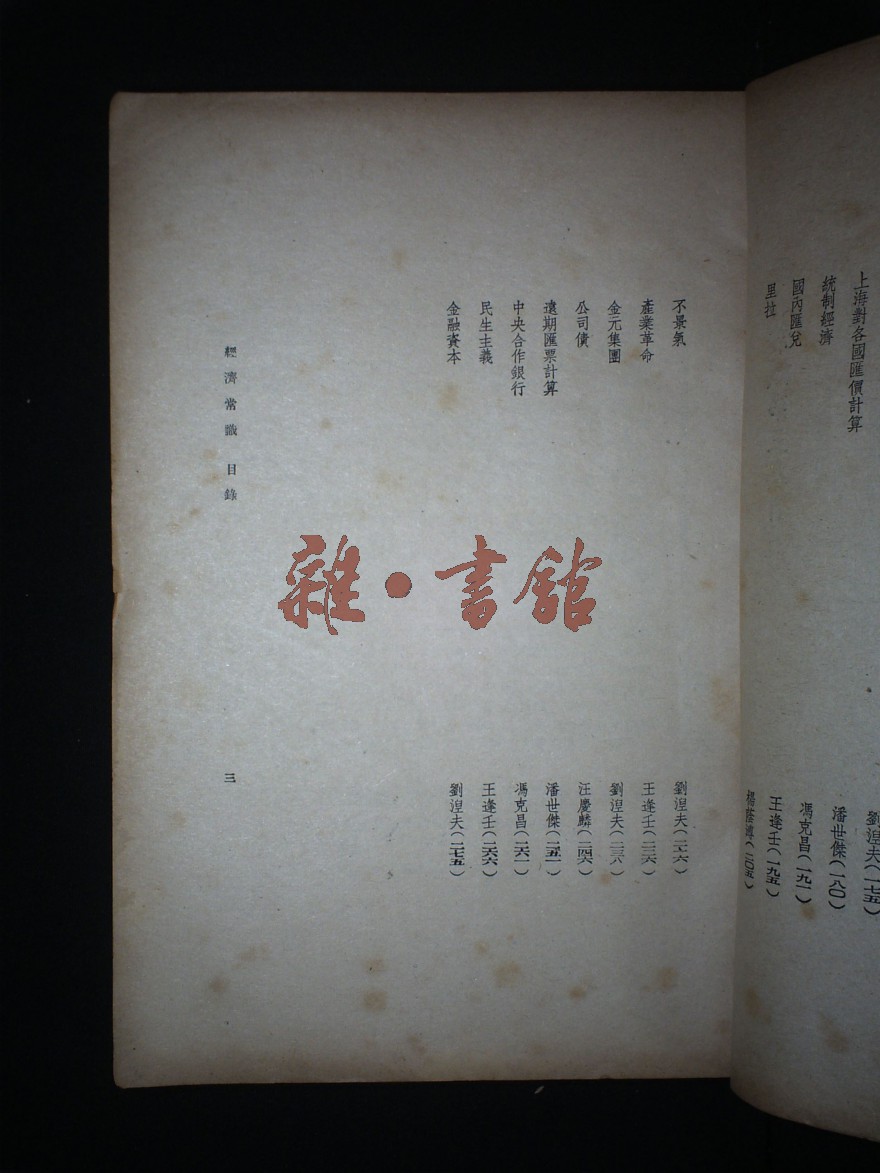 劉湼夫(一七五)
上海對各國匯價計算 潘世傑(一八〇)
統制經濟 馮克昌(一九一)
國內匯兌 王逢壬(一九五)
里拉 楊蔭溥(二〇五)
不景氣 劉湼夫(二二六)
產業革命 王逢壬(二三六)
金元集團 劉湼夫(二三八)
公司債 汪慶麟(二四六)
遠期匯票計算 潘世傑(二五一)
中央合作銀行 馮克昌(二六一)
民生主義 王逢壬(二六六)
金融資本 劉湼夫(二七五)
經濟常識 目錄 三
雜·書館